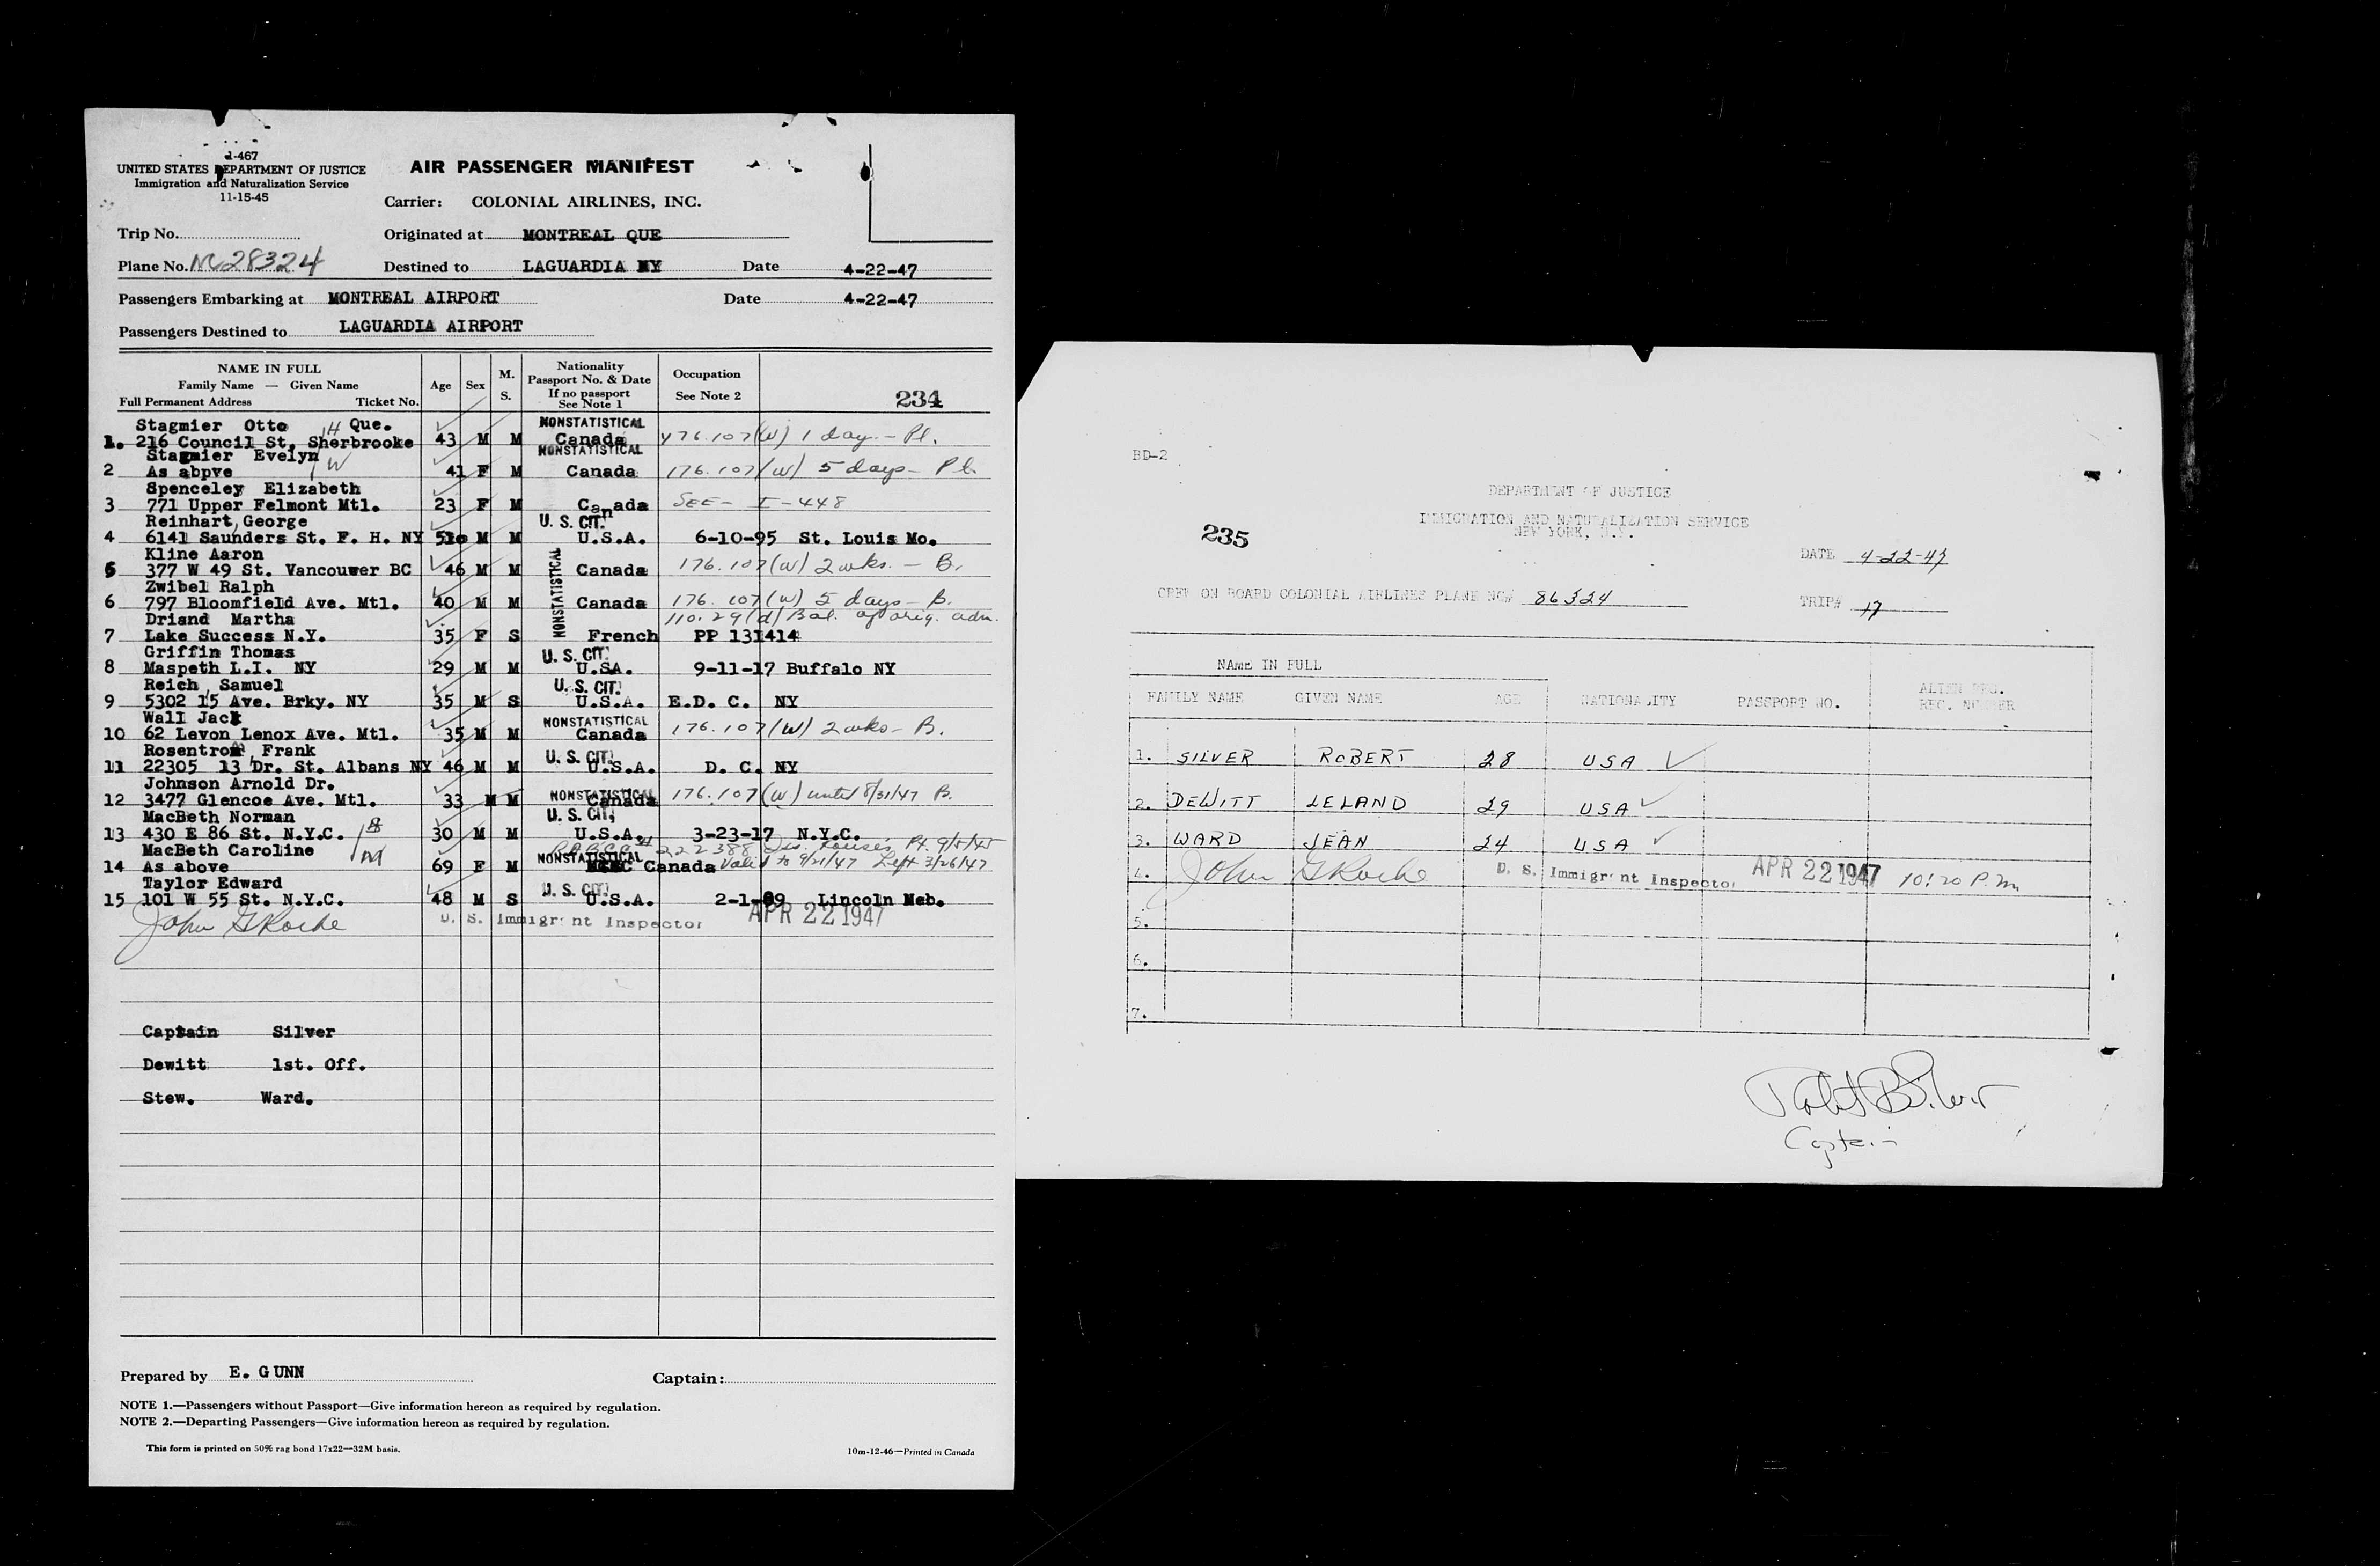 I-467
UNITED STATES DEPARTMENT OF JUSTICE
Immigration and Naturalization Service
11-15-45
AIR PASSENGER MANIFEST
Carrier: COLONIAL AIRLINES, INC.
Trip No.
Originated at MONTREAL QUE
Plane No. NC28324
Destined to LAGUARDIA NY Date 4-22-47
Passengers Embarking at MONTREAL AIRPORT Date 4-22-47
Passengers Destined to LAGUARDIA AIRPORT
NAME IN FULL
Family Name — Given Name
Full Permanent Address Ticket No.
Age
Sex
M.
S.
Nationality
Passport No. & Date
If no passport
See Note 1
Occupation
See Note 2
234
Stagmier Otto H Que. NONSTATISTICAL
1. 216 Council St, Sherbrooke 43 M M Canada 176.107(W) 1 day - Pl.
Stagmier Evelyn W NONSTATISTICAL
2 As abpve 41 F M Canada 176.107(W) 5 days - Pl.
Spenceley Elizabeth
3 771 Upper Felmont Mtl. 23 F M Canada SEE - I-448
Reinhart, George U. S. CIT.
4 6141 Saunders St. F. H. NY 51 M M U.S.A. 6-10-95 St. Louis Mo.
Kline Aaron NONSTATISTICAL
5 377 W 49 St. Vancouver BC 46 M M Canada 176.107(W) 2 wks. - B.
Zwibel Ralph
6 797 Bloomfield Ave. Mtl. 40 M M Canada 176.107(W) 5 days - B.
Driand Martha 110.29(d) Bal. of orig. adm.
7 Lake Success N.Y. 35 F S French PP 131414
Griffin Thomas U. S. CIT.
8 Maspeth L.I. NY 29 M M U.SA. 9-11-17 Buffalo NY
Reich, Samuel U. S. CIT.
9 5302 15 Ave. Brky. NY 35 M S U.S.A. E.D. C. NY
Wall Jack NONSTATISTICAL
10 62 Levon Lenox Ave. Mtl. 35 M M Canada 176.107(W) 2 wks - B.
Rosentrom, Frank U. S. CIT.
11 22305 13 Dr. St. Albans NY 46 M M U.S.A. D. C. NY
Johnson Arnold Dr. NONSTATISTICAL
12 3477 Glencoe Ave. Mtl. 33 M M Canada 176.107(W) until 8/31/47 B.
MacBeth Norman U. S. CIT.
13 430 E 86 St. N.Y.C. 30 M M U.S.A. 3-23-17 N.Y.C.
MacBeth Caroline M NONSTATISTICAL 222388 Pt. 9/5/45
14 As above 69 F M Canada Valid to 9/21/47 Left 3/26/47
Taylor Edward U. S. CIT.
15 101 W 55 St. N.Y.C. 48 M S U.S.A. 2-1-99 Lincoln Neb.
John G Roche U. S. Immigrant Inspector APR 22 1947
Captain Silver
Dewitt 1st. Off.
Stew. Ward.
Prepared by E. GUNN
Captain:
NOTE 1.—Passengers without Passport—Give information hereon as required by regulation.
NOTE 2.—Departing Passengers—Give information hereon as required by regulation.
This form is printed on 50% rag bond 17x22—32M basis.
10m-12-46—Printed in Canada
BD-2
DEPARTMENT OF JUSTICE
IMMIGRATION AND NATURALIZATION SERVICE
NEW YORK, N.Y.
235
DATE 4-22-47
CREW ON BOARD COLONIAL AIRLINES PLANE NO# 86324
TRIP# 17
NAME IN FULL
FAMILY NAME GIVEN NAME AGE NATIONALITY PASSPORT NO. ALIEN REG. REC. NUMBER
1. SILVER ROBERT 28 USA
2. DEWITT LELAND 29 USA
3. WARD JEAN 24 USA
4. John G Roche U. S. Immigrant Inspector APR 22 1947 10:20 P.M.
5.
6.
7.
Robert B Silver
Captain